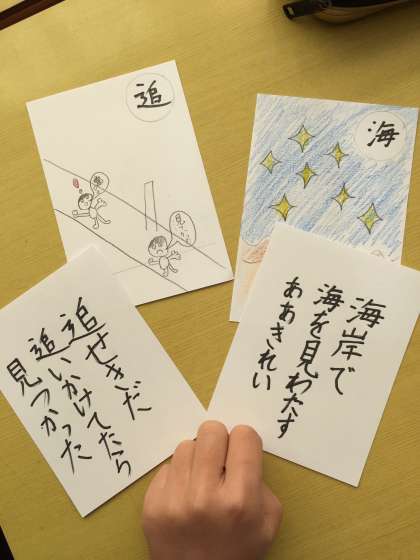 追
海
追せきだ
追いかけてたら
見つかった
海岸で
海を見わたす
ああきれい